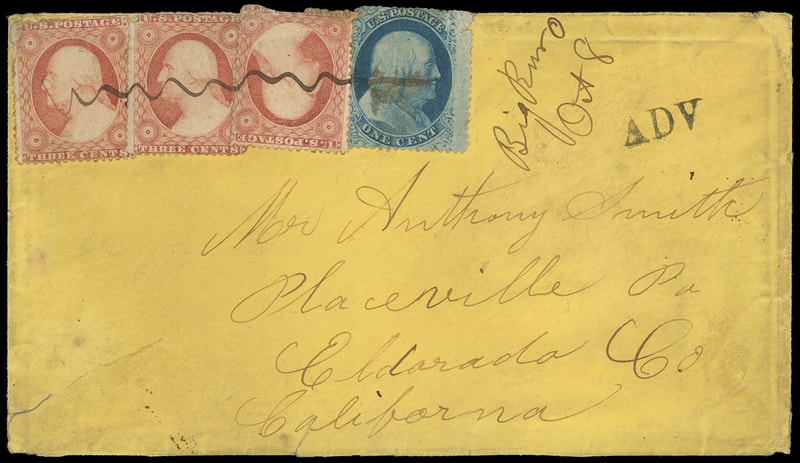 U.S. POSTAGE
THREE CENTS
U.S. POSTAGE
THREE CENTS
U.S. POSTAG
U.S. POSTAGE
ONE CENT
Big Run O
Oct 8
ADV
Mr Anthony Smith
Placeville Po
Eldorado Co
California